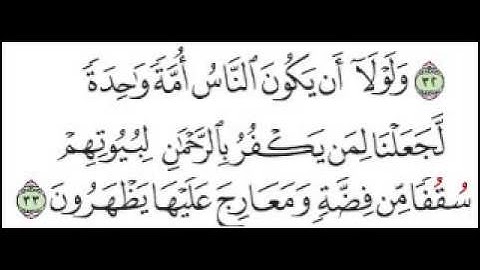 ٣٢ وَلَوْلَآ أَن يَكُونَ ٱلنَّاسُ أُمَّةً وَٰحِدَةً
لَّجَعَلْنَا لِمَن يَكْفُرُ بِٱلرَّحْمَٰنِ لِبُيُوتِهِمْ
سُقُفًا مِّن فِضَّةٍ وَمَعَارِجَ عَلَيْهَا يَظْهَرُونَ ٣٣